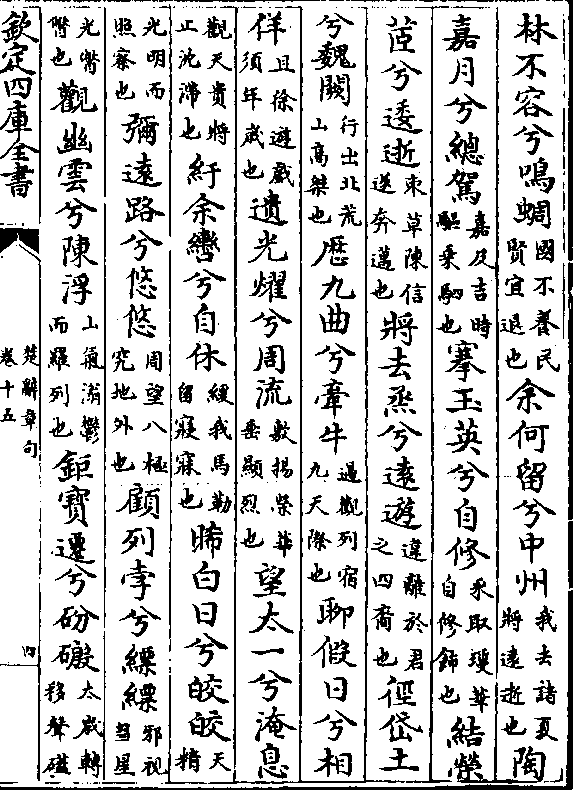 林不容兮鳴蜩國不養民賢宜退也余何留兮中州我去諸夏將遠逝也陶
嘉月兮總駕嘉及吉時驅乘駟也搴玉英兮自修采取瓊華自修飾也結榮
茝兮逶逝束草陳信遂奔邁也將去烝兮遠遊違離於君之四裔也徑岱土
兮魏闕行出北荒山高桀也歴九曲兮牽牛過觀列宿九天際也聊假日兮相
佯且徐遊戲須年歲也遺光燿兮周流敷揚榮華垂顯烈也望太一兮淹息
觀天貴將止沈滯也紆余轡兮自休緩我馬勒留寢寐也晞白日兮皎皎天精
光明而照察也彌遠路兮悠悠周望八極究地外也顧列孛兮縹縹邪視彗星
光瞥瞥也觀幽雲兮陳浮山氣滃鬱而羅列也鉅寶遷兮砏磤太歲轉移聲磕
欽定四庫全書
楚辭章句
卷十五
四